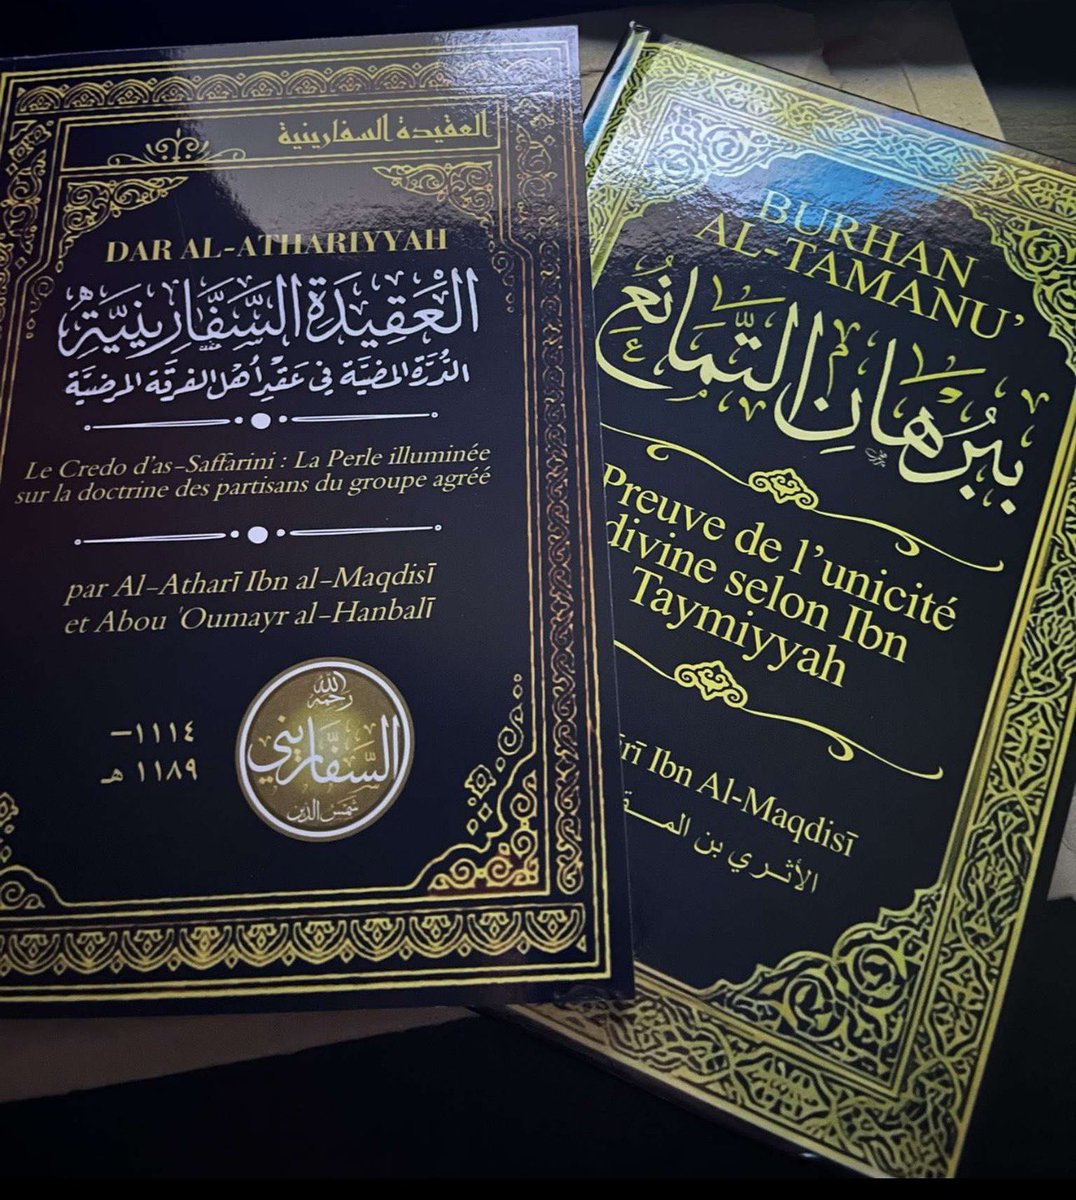 العقيدة السفارينية
DAR AL-ATHARIYYAH
العَقِيدَة السَّفَّارِينِيَّة
الدُّرَّة المضيَّة في عَقْدِ أهل الفرقَة المرضيَّة
Le Credo d'as-Saffarini : La Perle illuminée
sur la doctrine des partisans du groupe agréé
par Al-Atharī Ibn al-Maqdisī
et Abou 'Oumayr al-Hanbalī
١١١٤–
١١٨٩ هـ
رحمه الله
السَّفَّاريني
شمس الدين
BURHAN
AL-TAMANU'
بُرْهَانِ التَّمَانُعِ
Preuve de l'unicité
divine selon Ibn
Taymiyyah
Ibn Al-Maqdisī
الأثري بن